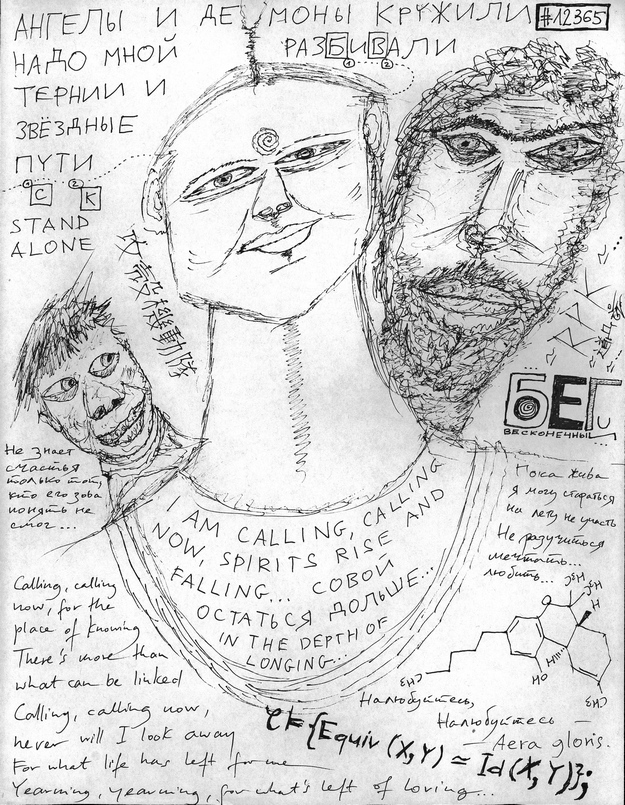 АНГЕЛЫ И ДЕМОНЫ КРУЖИЛИ
#12365
НАДО МНОЙ
РАЗБИВАЛИ
1 2
ТЕРНИИ И
ЗВЁЗДНЫЕ
ПУТИ
1 2
С К
STAND
ALONE
攻殻機動隊
БЕГ
БЕСКОНЕЧНЫЙ
Не знает
счастья
только тот,
кто его зова
понять не
смог...
Пока жива
я могу стараться
на лету не упасть
Не разучиться
мечтать...
любить...
I AM CALLING, CALLING
NOW, SPIRITS RISE AND
FALLING... СОБОЙ
ОСТАТЬСЯ ДОЛЬШЕ...
IN THE DEPTH OF
LONGING...
Calling, calling
now, for the
place of knowing
There's more than
what can be linked
Calling, calling now,
never will I look away
For what life has left for me
Yearning, yearning, for what's left of loving...
CH3
CH3
H
O
H
HO
H3C
CH3
Налюбуйтесь,
Налюбуйтесь —
— Aera gloris.
⊧{Equiv(X,Y) ≃
Id(X,Y)};